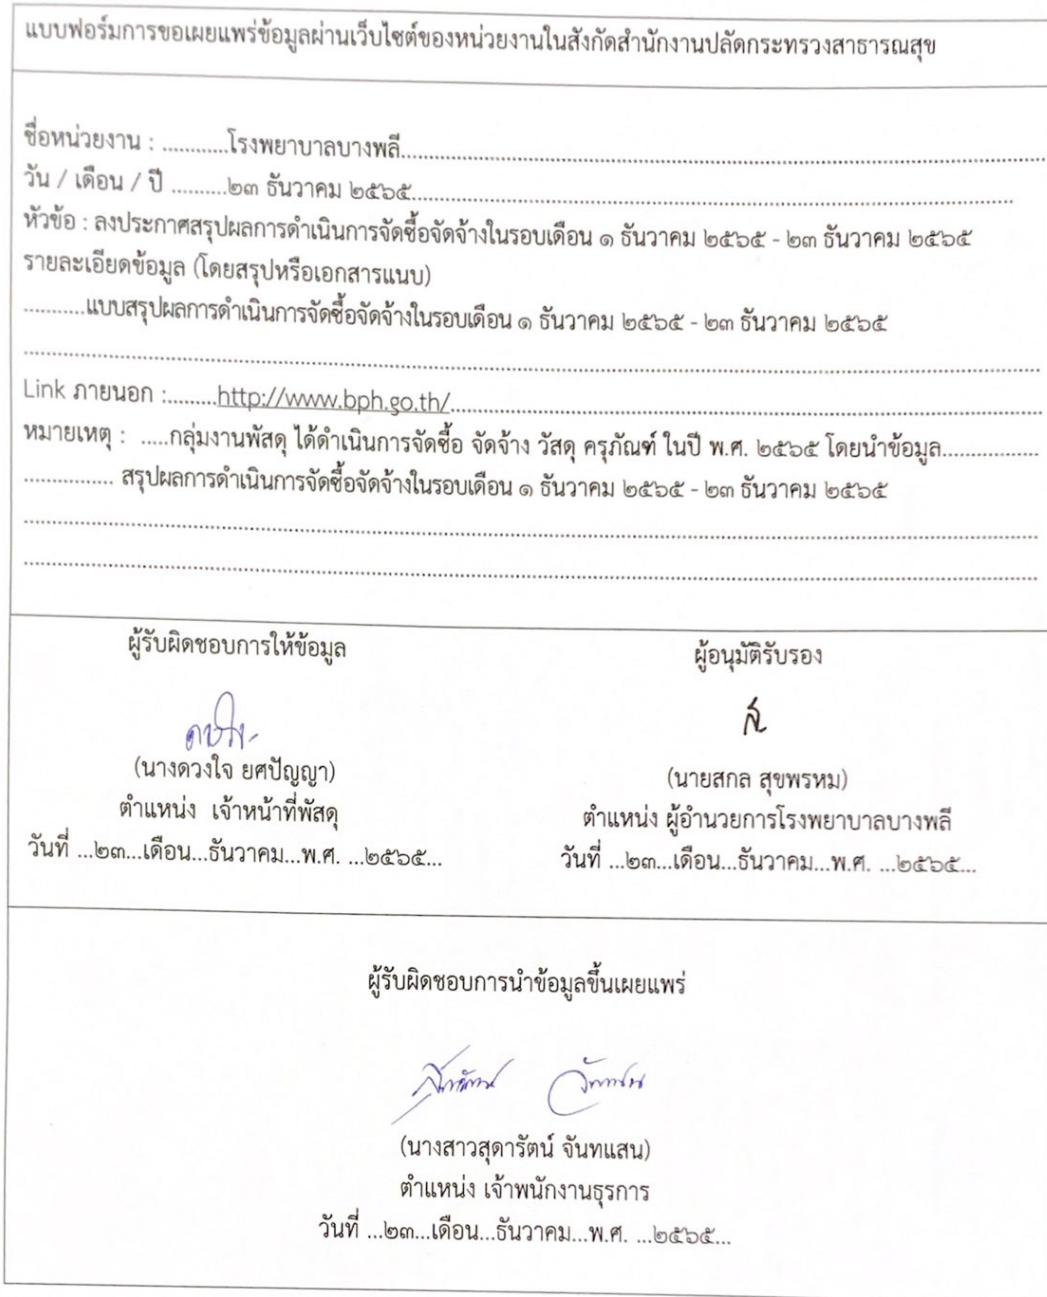 แบบฟอร์มการขอเผยแพร่ข้อมูลผ่านเว็บไซต์ของหน่วยงานในสังกัดสำนักงานปลัดกระทรวงสาธารณสุข
ชื่อหน่วยงาน : ............โรงพยาบาลบางพลี............
วัน / เดือน / ปี ..........๒๓ ธันวาคม ๒๕๖๕............
หัวข้อ : ลงประกาศสรุปผลการดำเนินการจัดซื้อจัดจ้างในรอบเดือน ๑ ธันวาคม ๒๕๖๕ - ๒๓ ธันวาคม ๒๕๖๕
รายละเอียดข้อมูล (โดยสรุปหรือเอกสารแนบ)
...........แบบสรุปผลการดำเนินการจัดซื้อจัดจ้างในรอบเดือน ๑ ธันวาคม ๒๕๖๕ - ๒๓ ธันวาคม ๒๕๖๕
Link ภายนอก :.........http://www.bph.go.th/............
หมายเหตุ : .....กลุ่มงานพัสดุ ได้ดำเนินการจัดซื้อ จัดจ้าง วัสดุ ครุภัณฑ์ ในปี พ.ศ. ๒๕๖๕ โดยนำข้อมูล.................
................ สรุปผลการดำเนินการจัดซื้อจัดจ้างในรอบเดือน ๑ ธันวาคม ๒๕๖๕ - ๒๓ ธันวาคม ๒๕๖๕
ผู้รับผิดชอบการให้ข้อมูล
(นางดวงใจ ยศปัญญา)
ตำแหน่ง เจ้าหน้าที่พัสดุ
วันที่ ...๒๓...เดือน...ธันวาคม...พ.ศ. ...๒๕๖๕...
ผู้อนุมัติรับรอง
(นายสกล สุขพรหม)
ตำแหน่ง ผู้อำนวยการโรงพยาบาลบางพลี
วันที่ ...๒๓...เดือน...ธันวาคม...พ.ศ. ...๒๕๖๕...
ผู้รับผิดชอบการนำข้อมูลขึ้นเผยแพร่
(นางสาวสุดารัตน์ จันทแสน)
ตำแหน่ง เจ้าพนักงานธุรการ
วันที่ ...๒๓...เดือน...ธันวาคม...พ.ศ. ...๒๕๖๕...